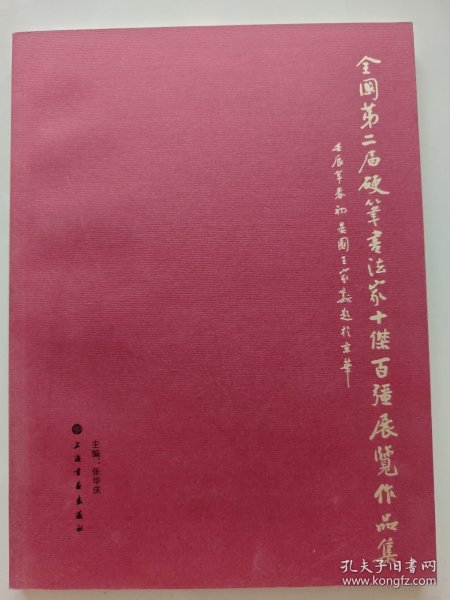 全國第二届硬筆書法家十傑百強展覽作品集
壬辰年春初吴國王家新題於京華
主编:张华庆
上海書画出版社
孔夫子旧书网
www.kongfz.com